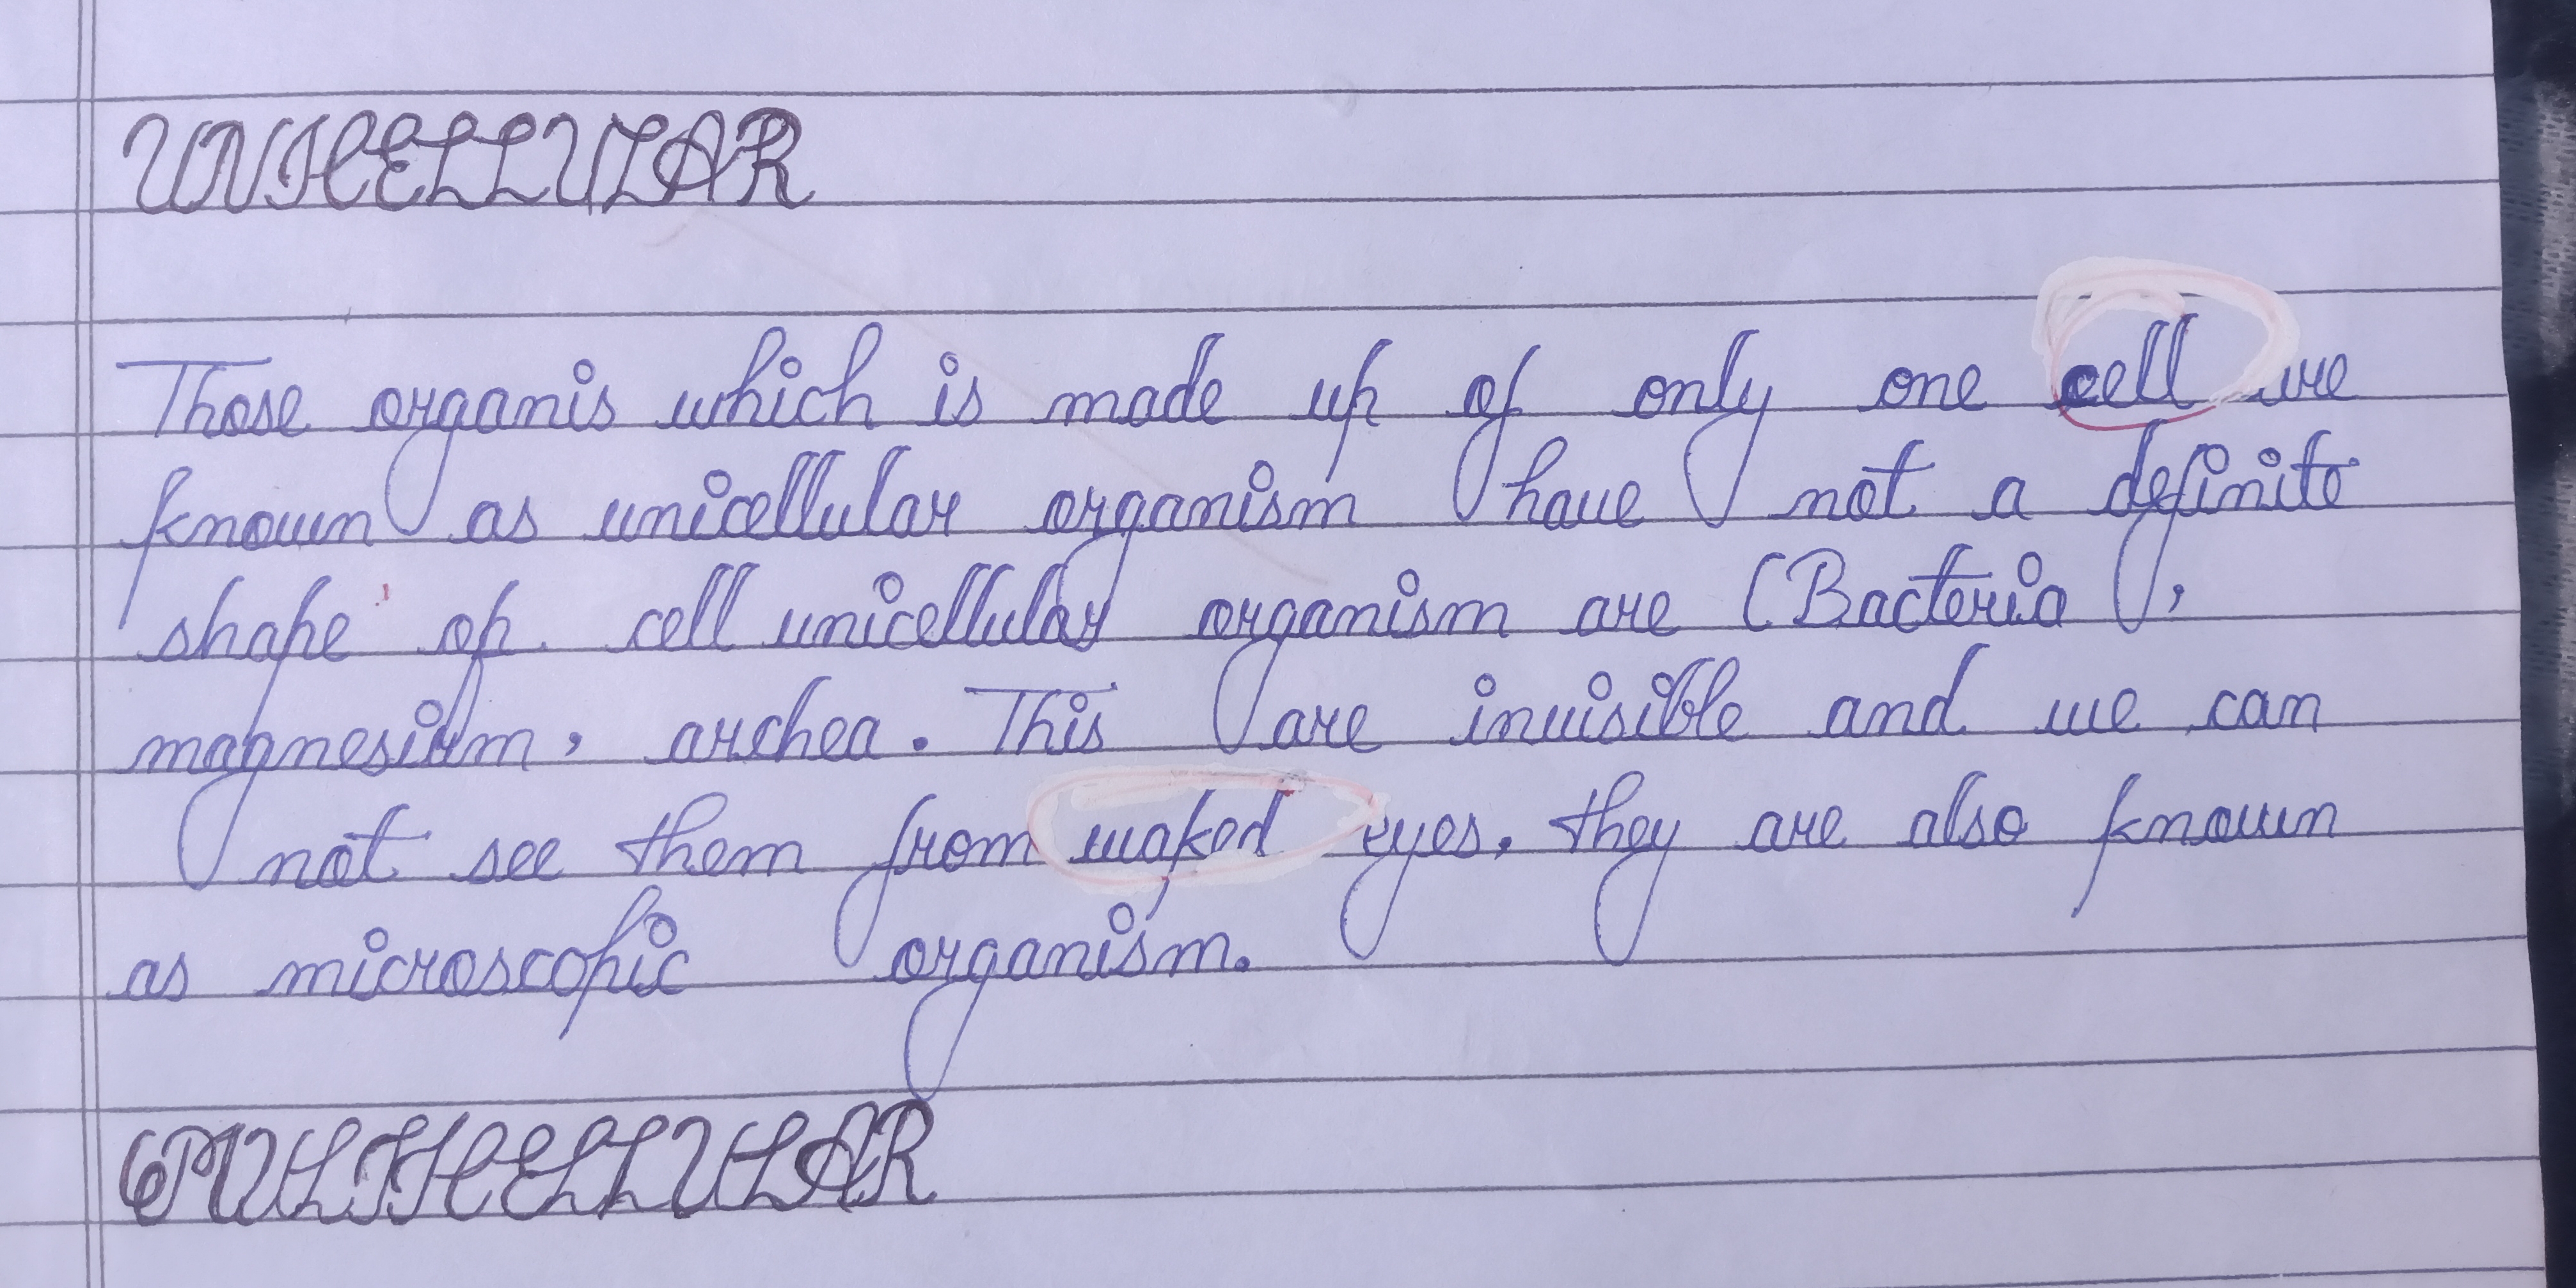 UNICELLULAR
Those organis which is made up of only one cell are
known as unicellular organism have not a definite
shape op. cell unicellular organism are (Bacteria ,
magnesium, archea. This are invisible and we can
not see them from waked eyes. they are also known
as microscopic organism.
MULTICELLULAR